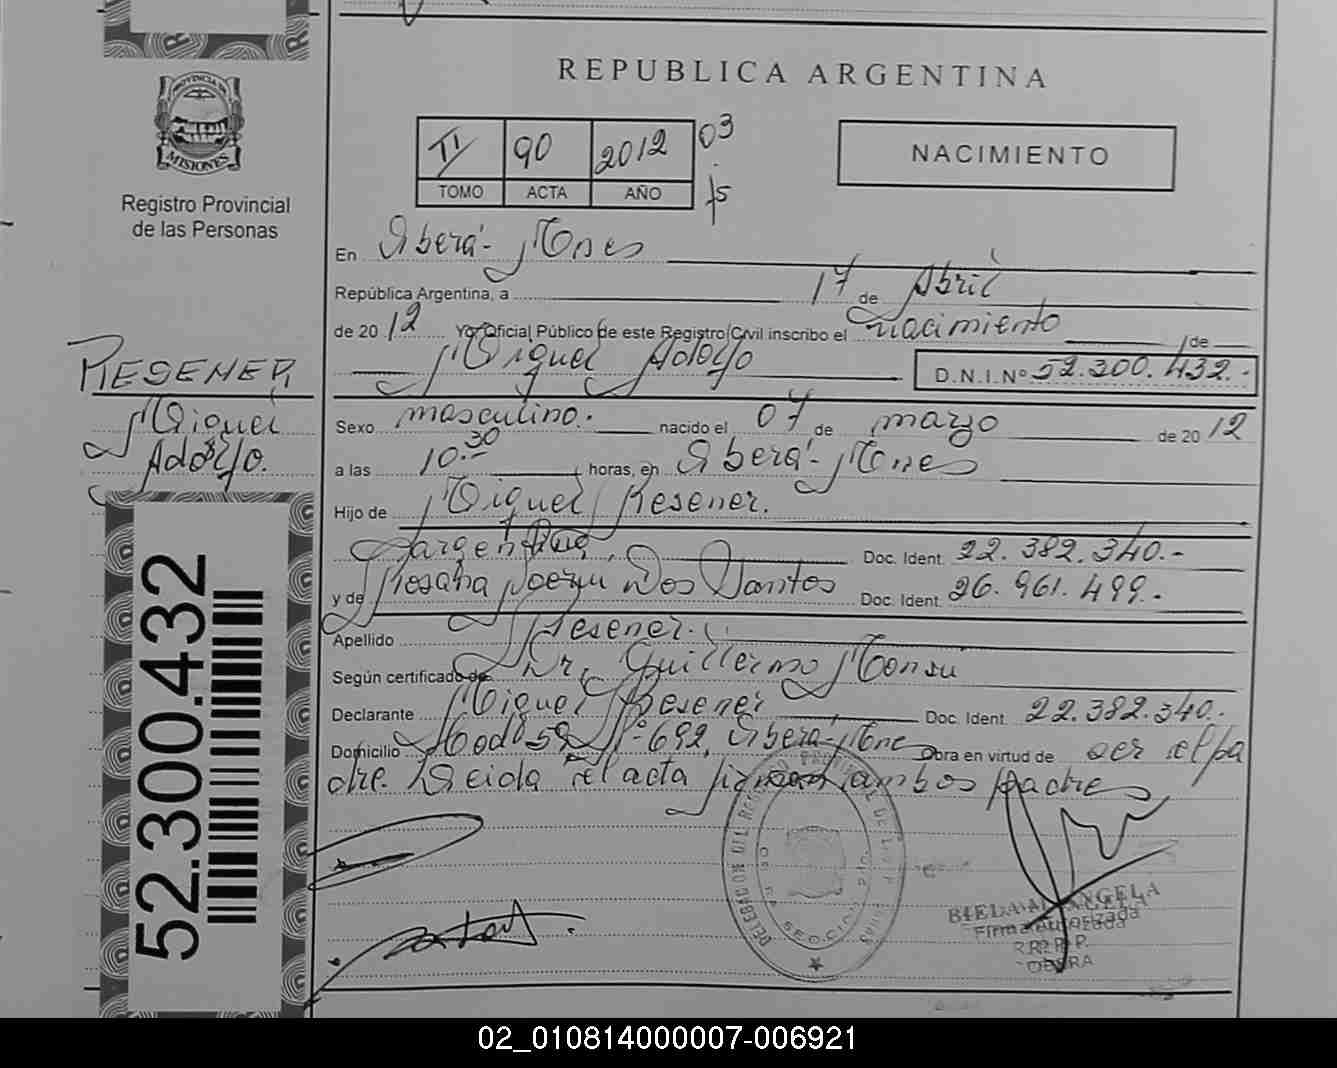 REPUBLICA ARGENTINA
PROVINCIA DE
MISIONES
Registro Provincial
de las Personas
II 90 2012 03
TOMO ACTA AÑO fs
NACIMIENTO
En Oberá- Mnes
República Argentina, a 17 de Abril
de 2012 Yo, Oficial Público de este Registro Civil inscribo el nacimiento de
Miguel Adolfo D.N.I.Nº 52.300.432.-
RESENER
Miguel
Adolfo.
Sexo masculino. nacido el 07 de marzo de 2012
a las 10.30 horas, en Oberá- Mnes
Hijo de Miguel Resener.
Argentina, Doc. Ident. 22.382.340.-
y de Rosana Dos Santos Doc. Ident. 26.961.499.-
Apellido Resener.
Según certificado de Dr. Guillermo
Declarante Miguel Resener Doc. Ident. 22.382.340.
Domicilio Nº 692, Oberá- Mne Obra en virtud de ser el pa
dre. Leida el acta firman ambos padres
52.300.432
ANGELA
Firma Autorizada
R.P.P.
OBERA
02_010814000007-006921